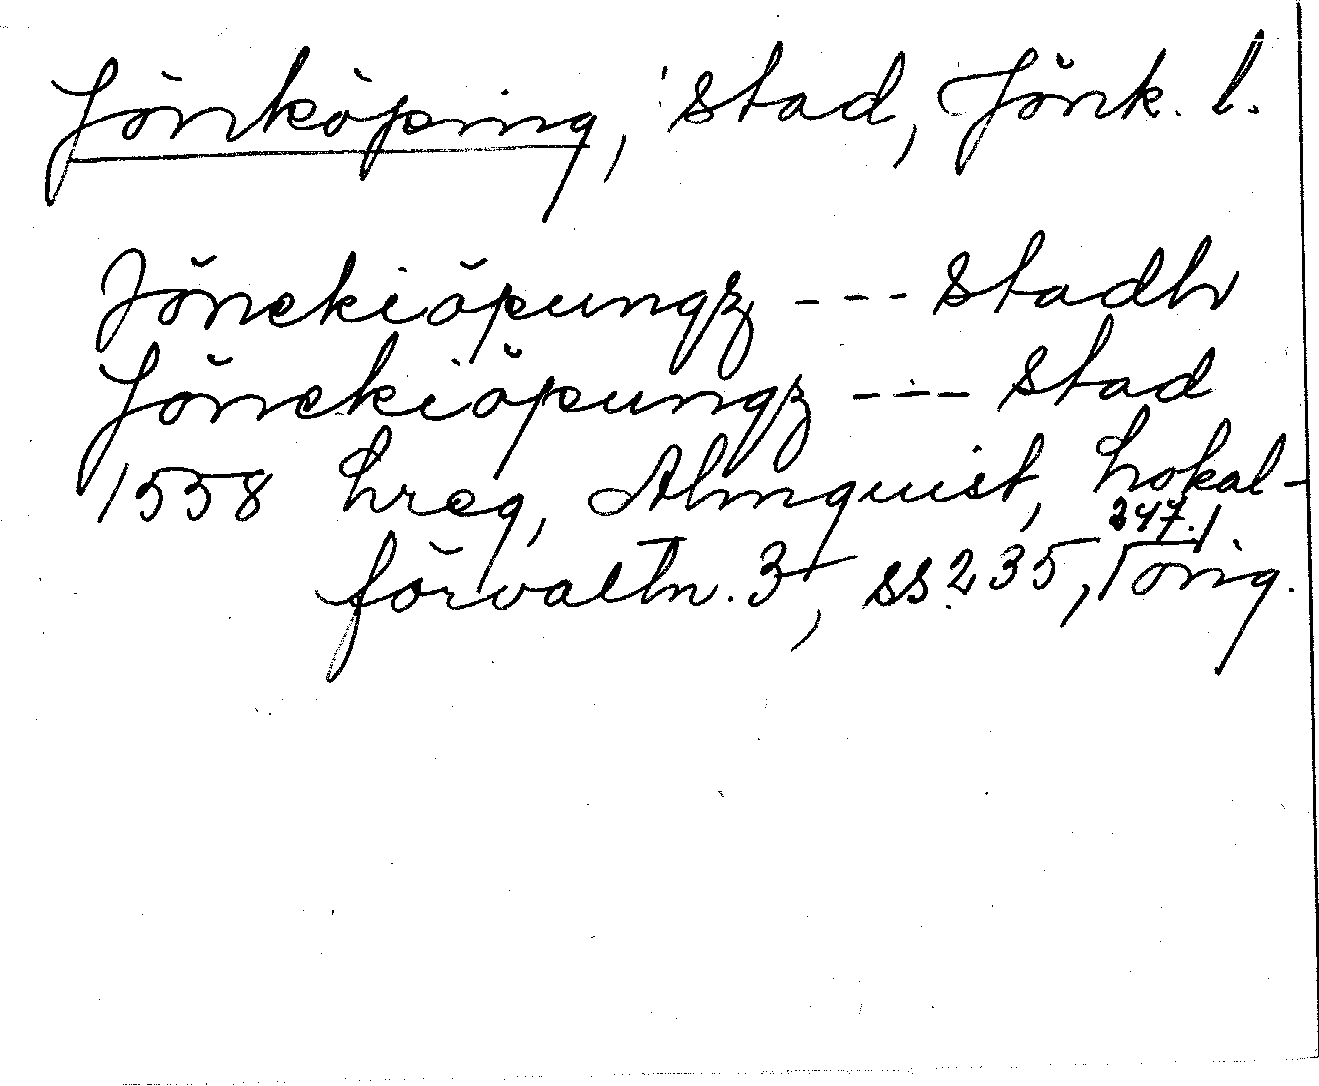 Jönköping, stad, Jönk. l.
Jönekiöpungz --- stadh
Jönekiöpungz --- stad
1558 hreg, Almquist, Lokal-
förvaltn. 3, ss. 235, 247. orig.